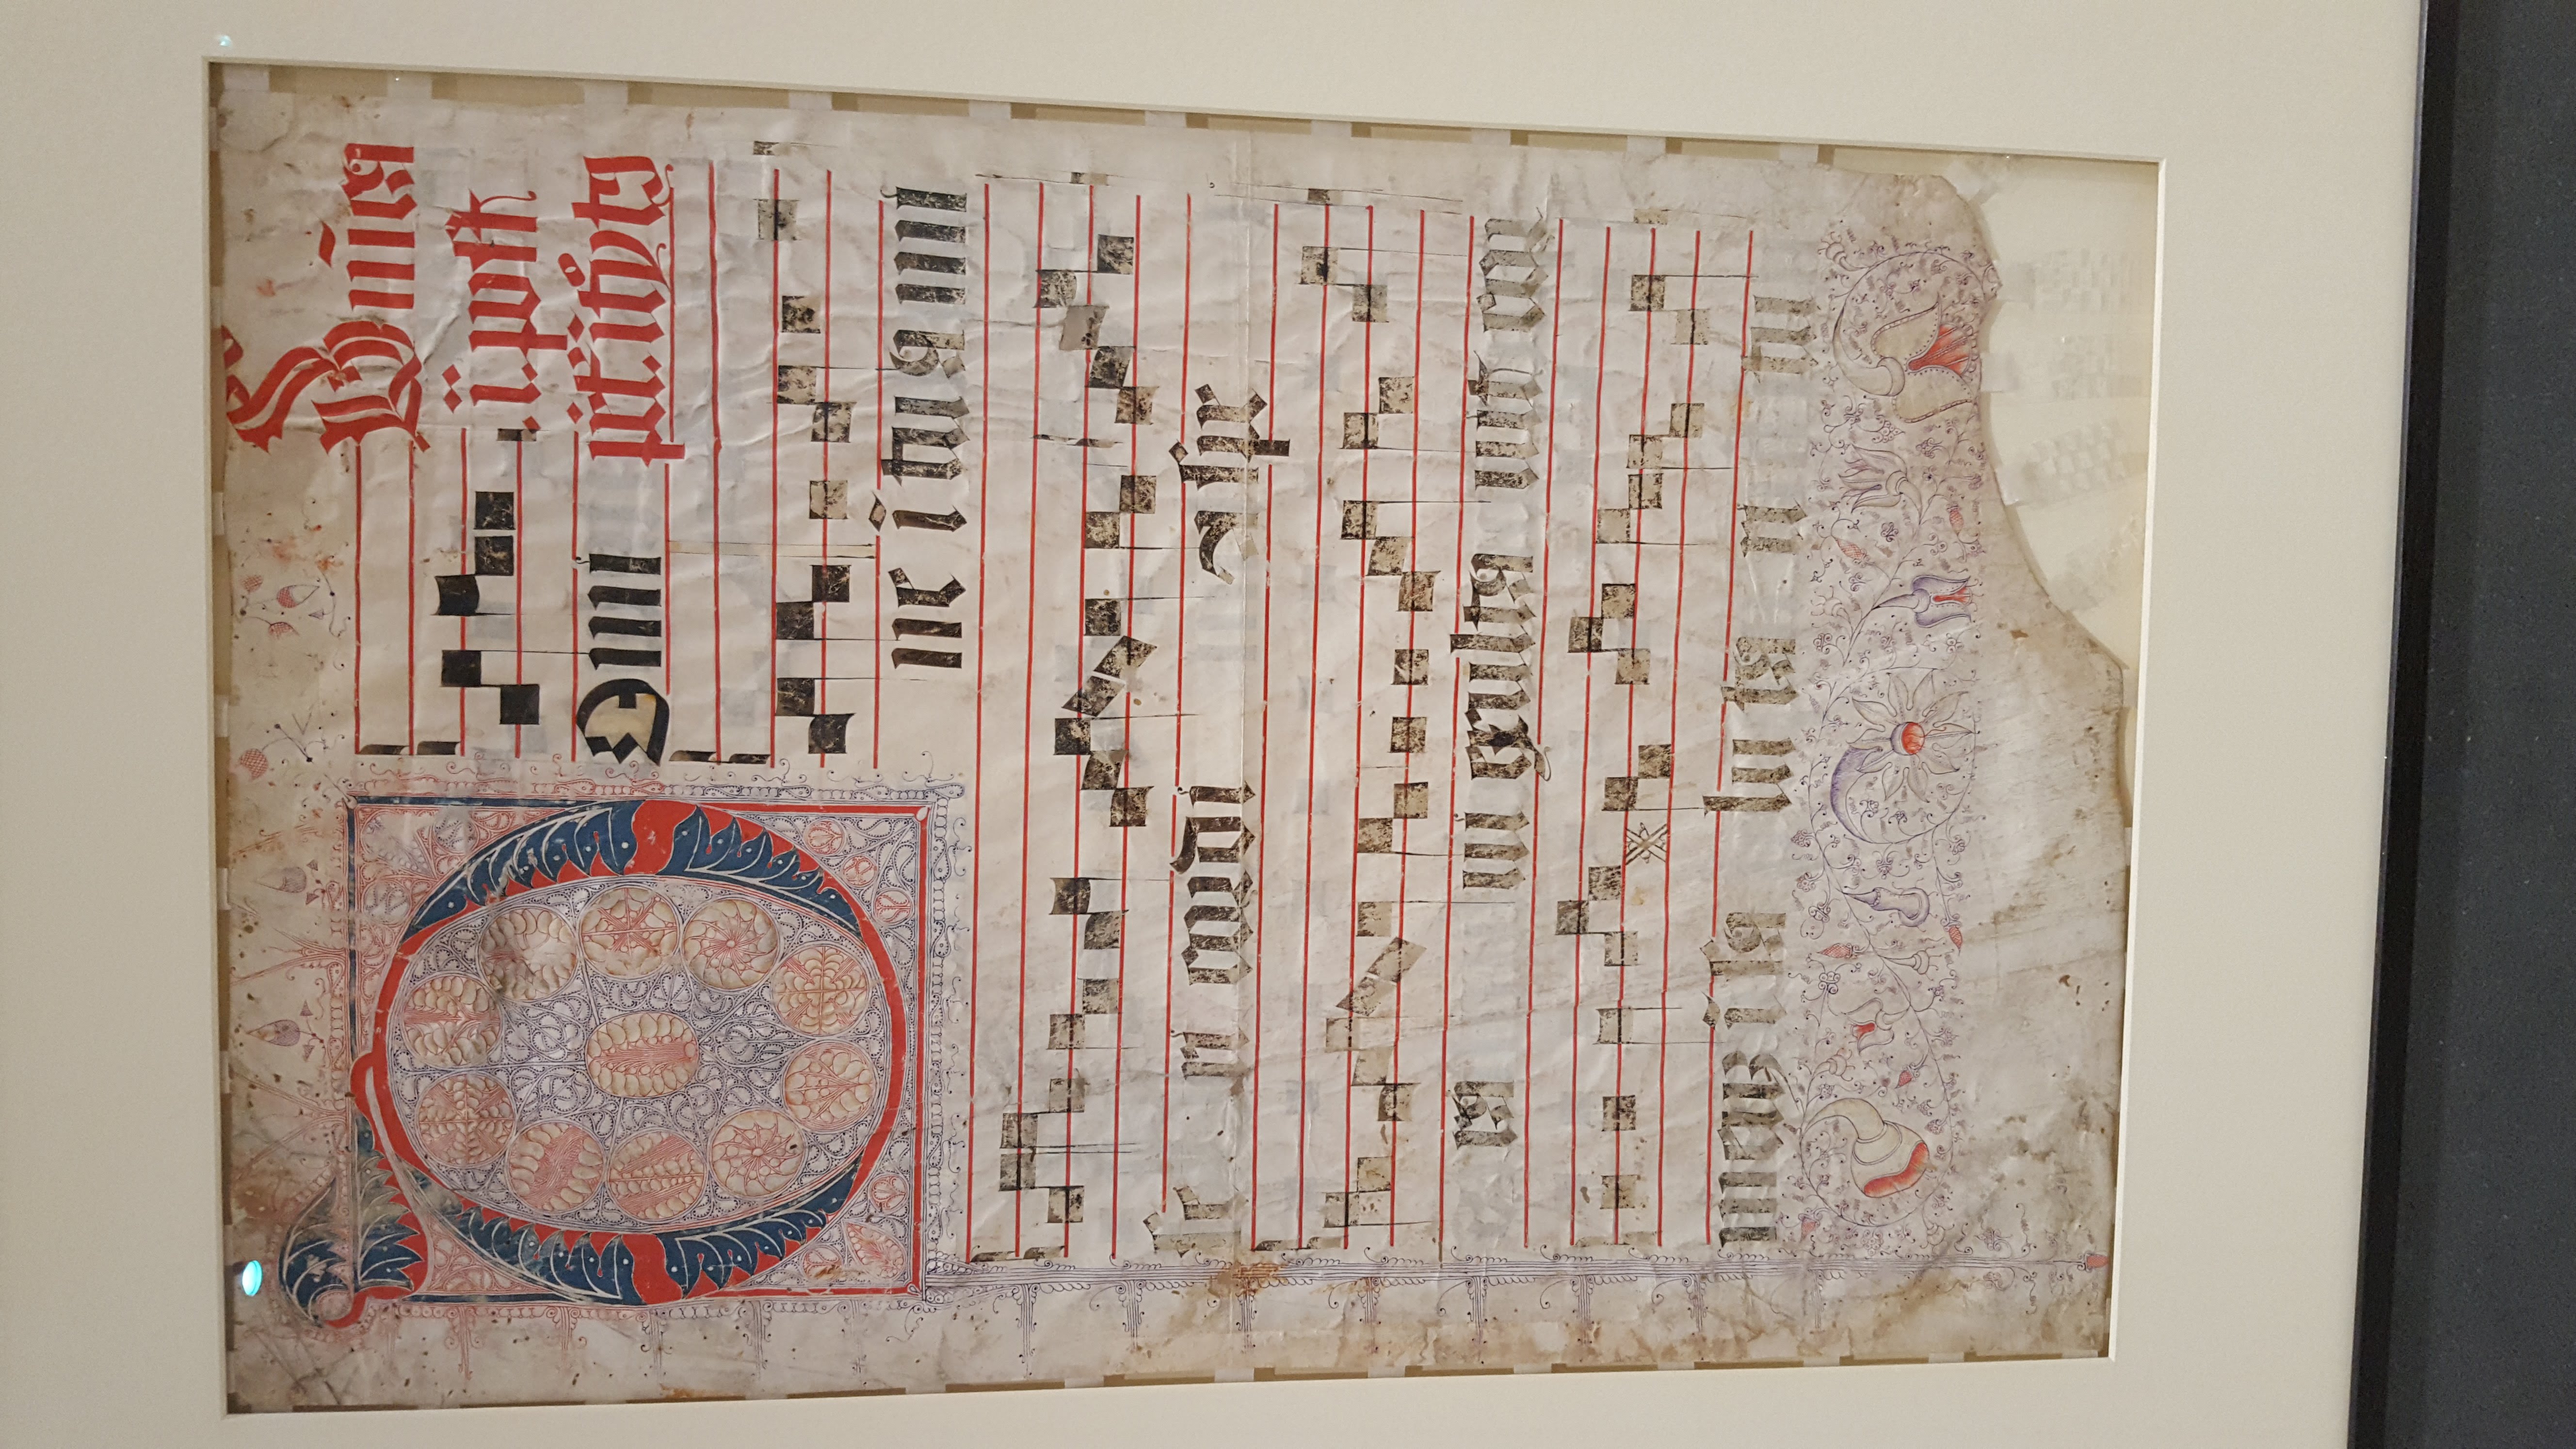 Dñica
.i. post
Omi
ne i tua mi
se ri cordi a spe
ra ui exulta uit cor
meuz i sa lu ta ri tu